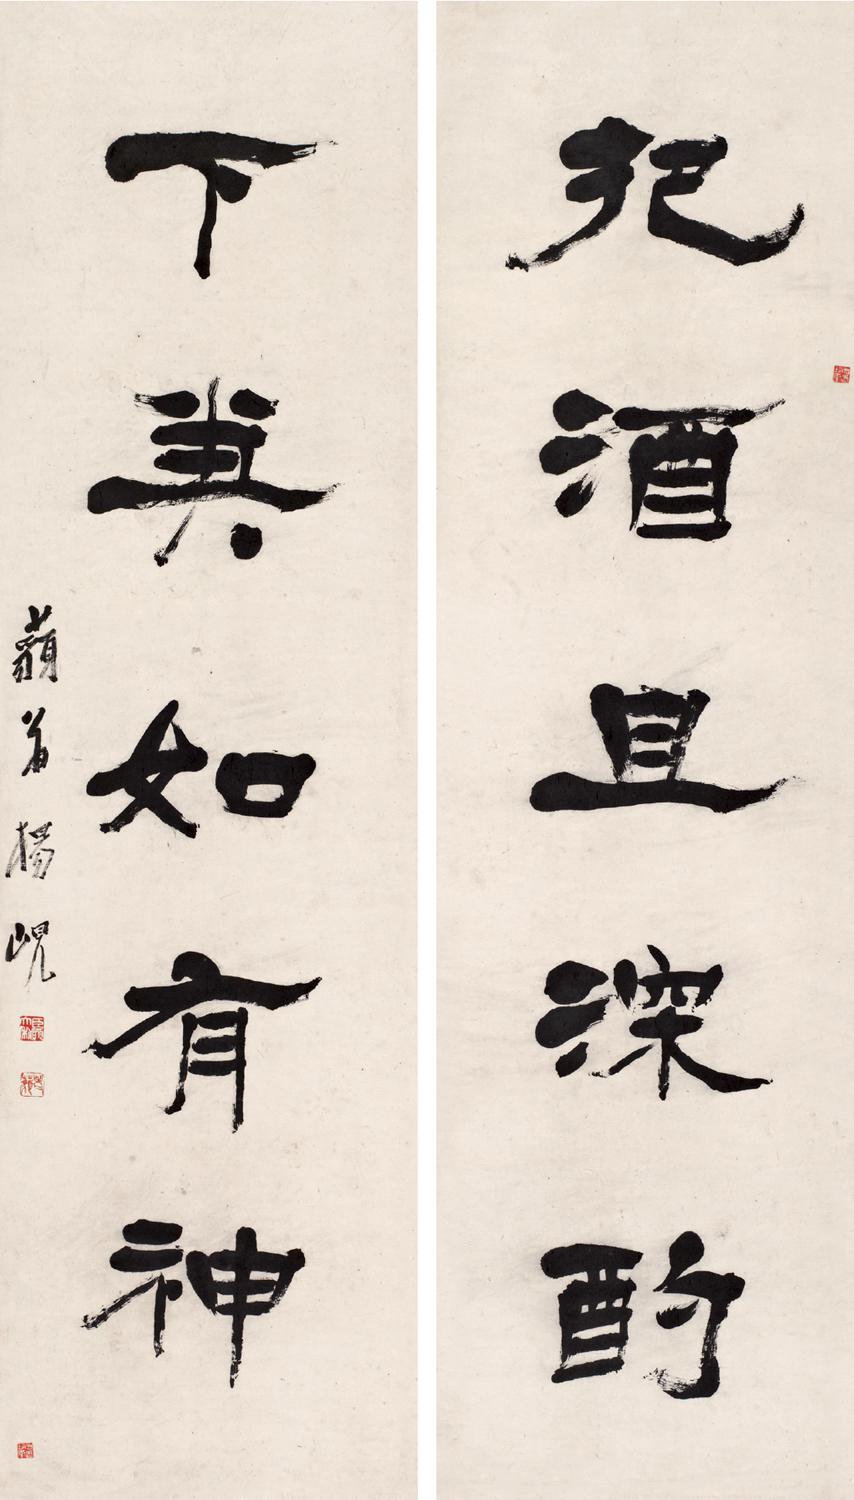 把酒且深酌
下如有神
藐翁楊峴